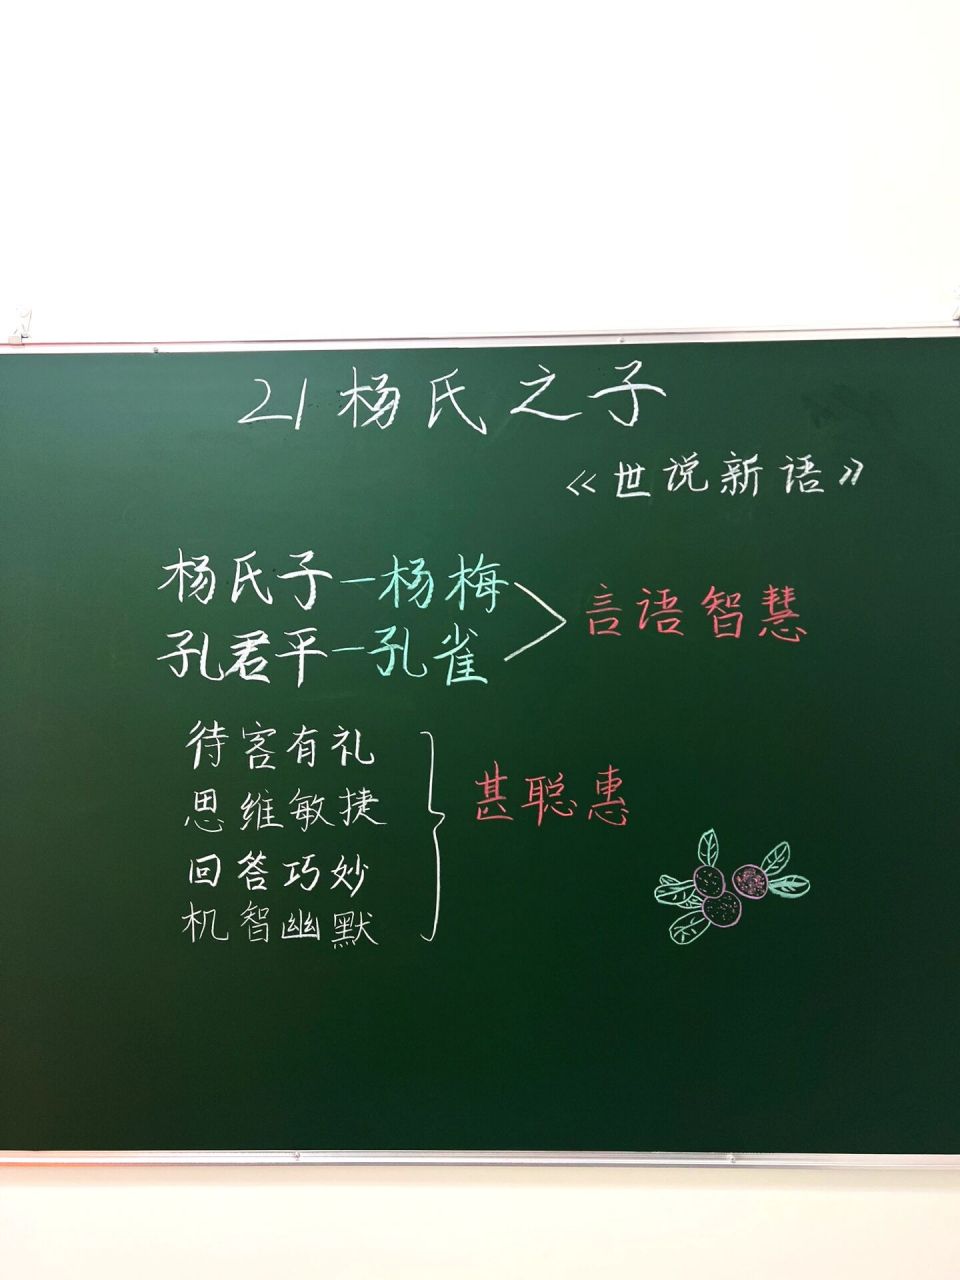 21杨氏之子
《世说新语》
杨氏子—杨梅
孔君平—孔雀
言语智慧
待客有礼
思维敏捷
回答巧妙
机智幽默
甚聪惠